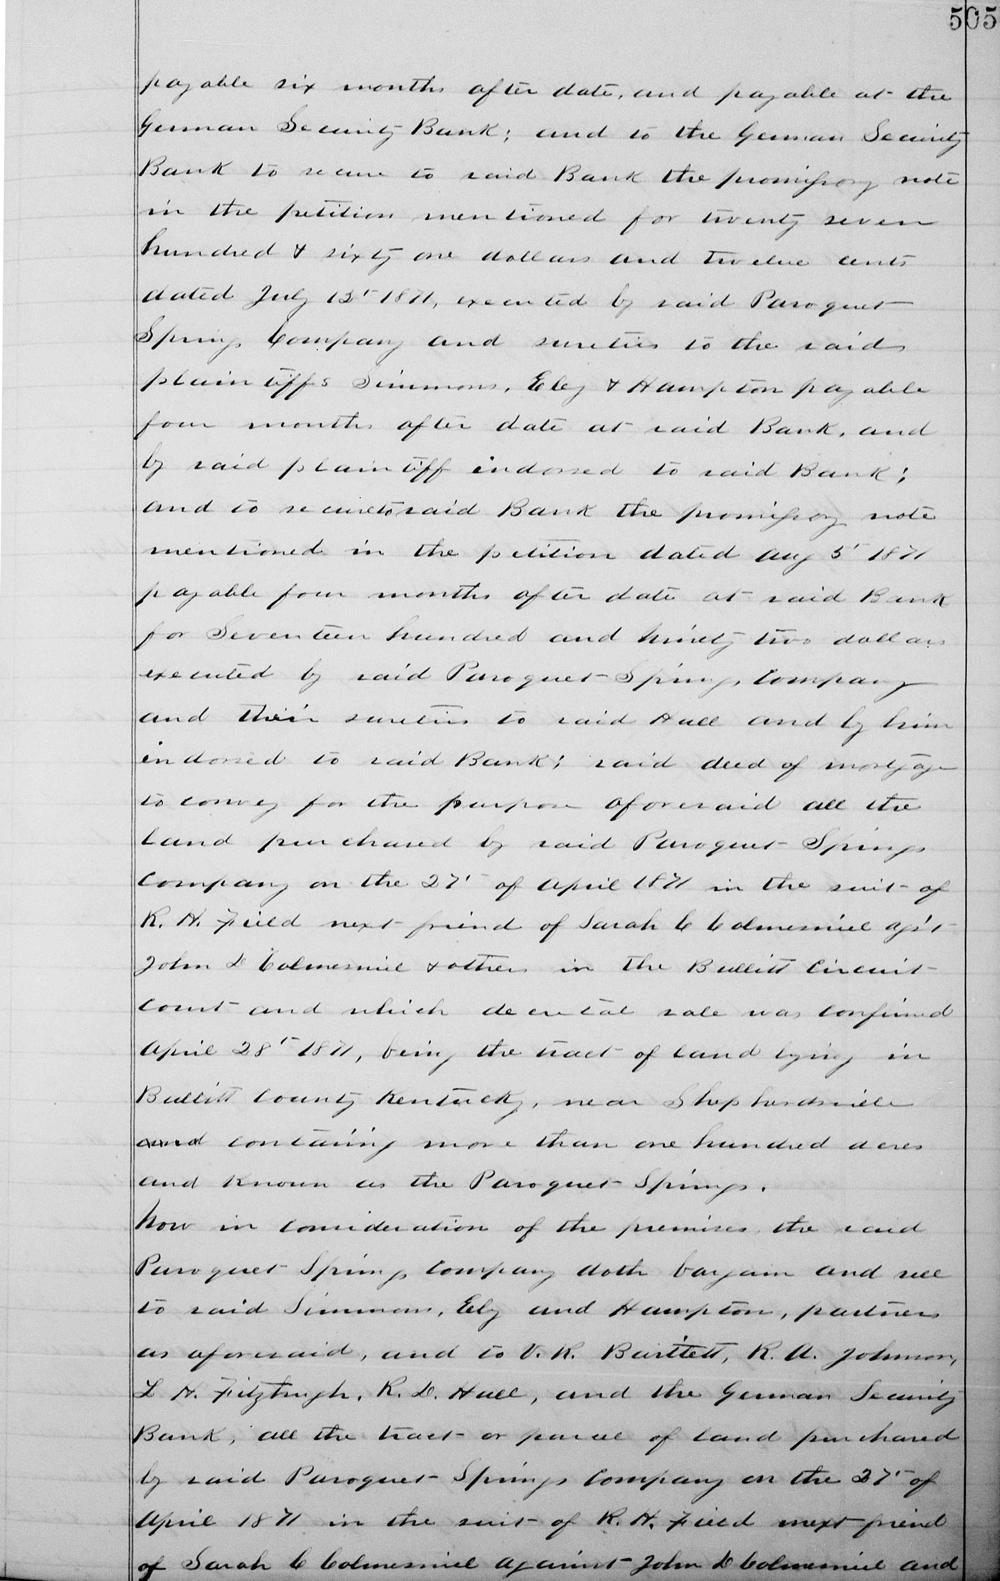 505
payable six months after date, and payable at the
German Security Bank; and to the German Security
Bank to secure to said Bank the promissory note
in the petition mentioned for twenty seven
hundred & sixty one dollars and twelve cents
dated July 15t 1871, executed by said Paroquet
Springs Company and sureties to the said
plaintiffs Simmons, Eley & Hampton payable
four months after date at said Bank, and
by said plaintiff indorsed to said Bank;
and to secure to said Bank the promissory note
mentioned in the petition dated Aug 5t 1871
payable four months after date at said Bank
for Seventeen hundred and ninety two dollars
executed by said Paroquet Springs Company
and their sureties to said Hall and by him
indorsed to said Bank; said deed of mortgage
to convey for the purpose aforesaid all the
land purchased by said Paroquet Springs
Company on the 27t of April 1871 in the suit of
R. H. Field next friend of Sarah C Colmesniel agst
John D Colmesniel & others in the Bullitt Circuit
Court and which decretal sale was confirmed
April 28t 1871, being the tract of land lying in
Bullitt County Kentucky, near Shepherdsville
and containg more than one hundred acres
and known as the Paroquet Springs.
Now in consideration of the premises the said
Paroquet Springs Company doth bargain and sell
to said Simmons, Ely and Hampton, partners
as aforesaid, and to V. R. Bartlett, R. A. Johnson,
L H. Fitzhugh, R. D. Hall, and the German Security
Bank, all the tract or parcel of land purchased
by said Paroquet Springs Company on the 27t of
April 1871 in the suit of R. H. Field next friend
of Sarah C Colmesniel against John D Colmesniel and